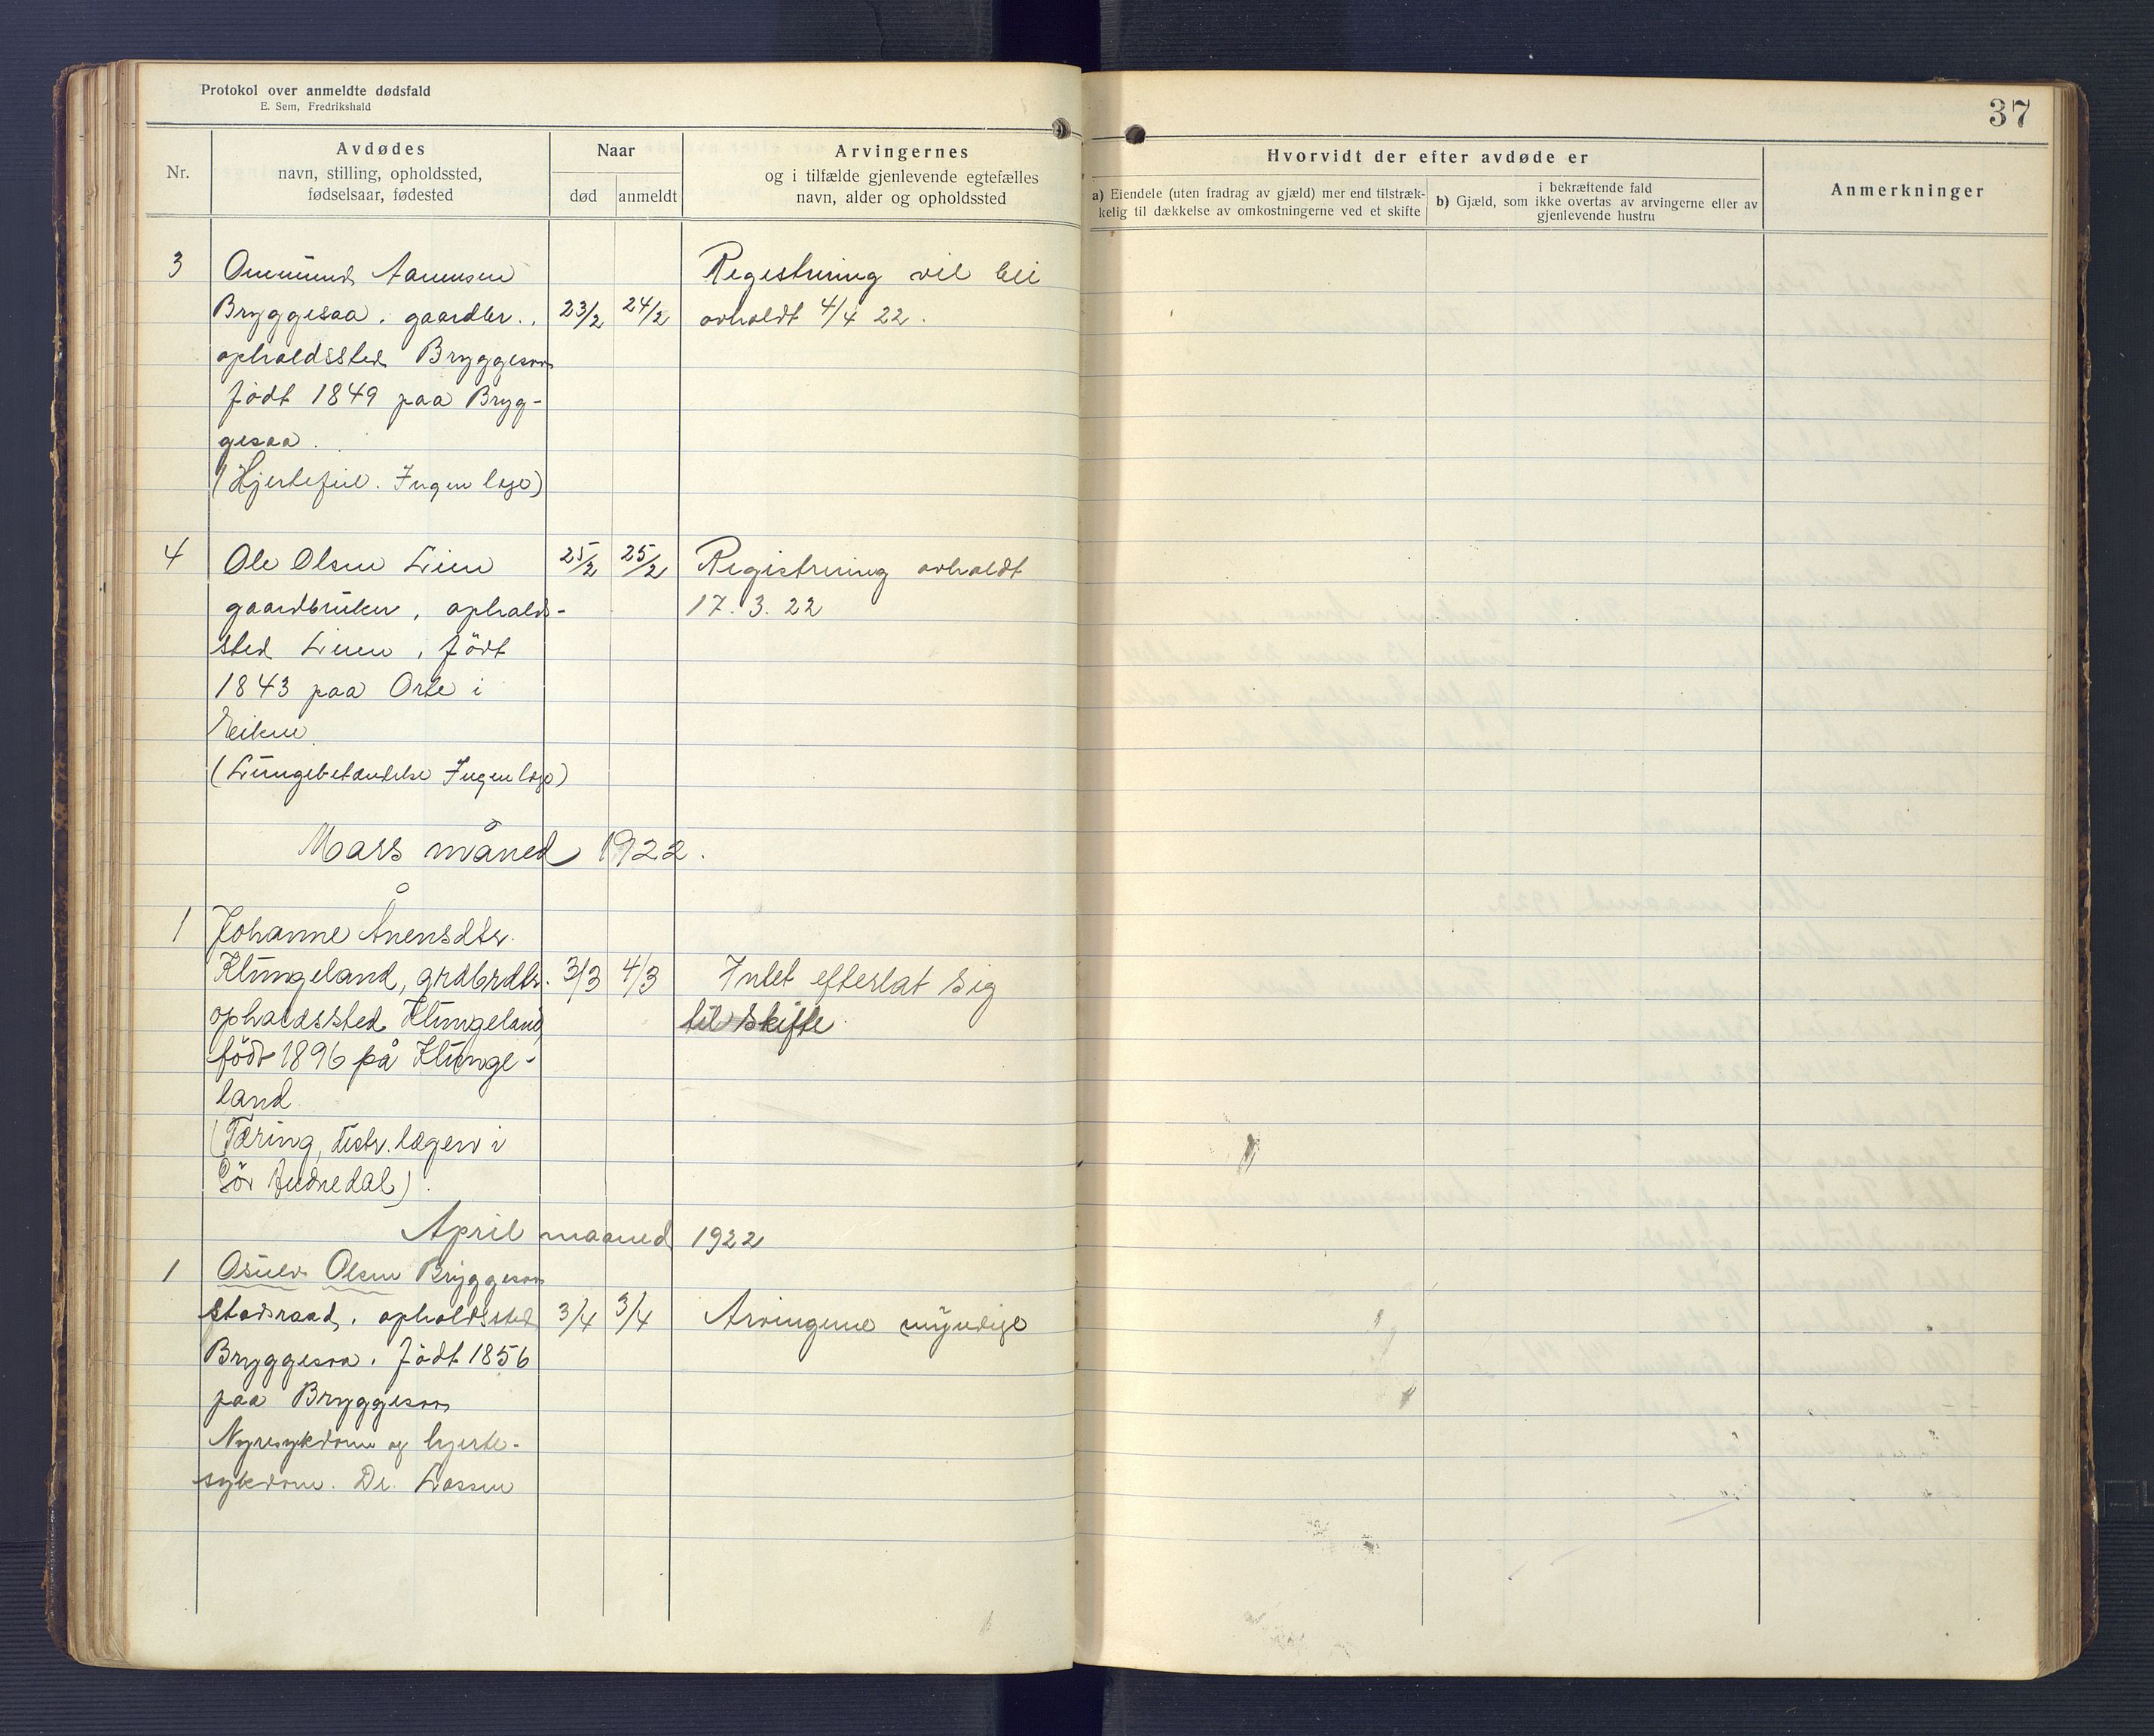 Protokol over anmeldte dødsfald
E. Sem, Fredrikshald
37
Nr.
Avdødes
navn, stilling, opholdssted,
fødselsaar, fødested
Naar
død
anmeldt
Arvingernes
og i tilfælde gjenlevende egtefælles
navn, alder og opholdssted
Hvorvidt der efter avdøde er
a) Eiendele (uten fradrag av gjæld) mer end tilstræk-
kelig til dækkelse av omkostningerne ved et skifte
i bekræftende fald
b) Gjæld, som ikke overtas av arvingerne eller av
gjenlevende hustru
Anmerkninger
3 Ommund Aanensen
Bryggesaa, gaardbr., 23/2 24/2
opholdssted Bryggesaa
født 1849 paa Bryg-
gesaa.
(Hjertefeil. Ingen læge)
Regestrering vil bli
avholdt 4/4 22.
4 Ole Olsen Lien 25/2 25/2
gaardbruker, opholds-
sted Lien, født
1843 paa Orte i
Eiken
(Lungebetændelse Ingen læge)
Registrering avholdt
17.3.22
Mars måned 1922.
1 Johanne Ånensdtr.
Klungeland, grdbrdtr. 3/3 4/3
opholdssted Klungeland,
født 1896 på Klunge-
land
(Tæring, distr.lægen i
Sør Audnedal).
Intet efterlat sig
til skifte.
April maaned 1922
1 Osuld Olsen Bryggesaa
stodsraad, opholdssted 3/4 3/4
Bryggesaa, født 1856
paa Bryggesaa
Nyresykdom og hjerte-
sykdom. Dr. Lassen
Arvingerne myndige